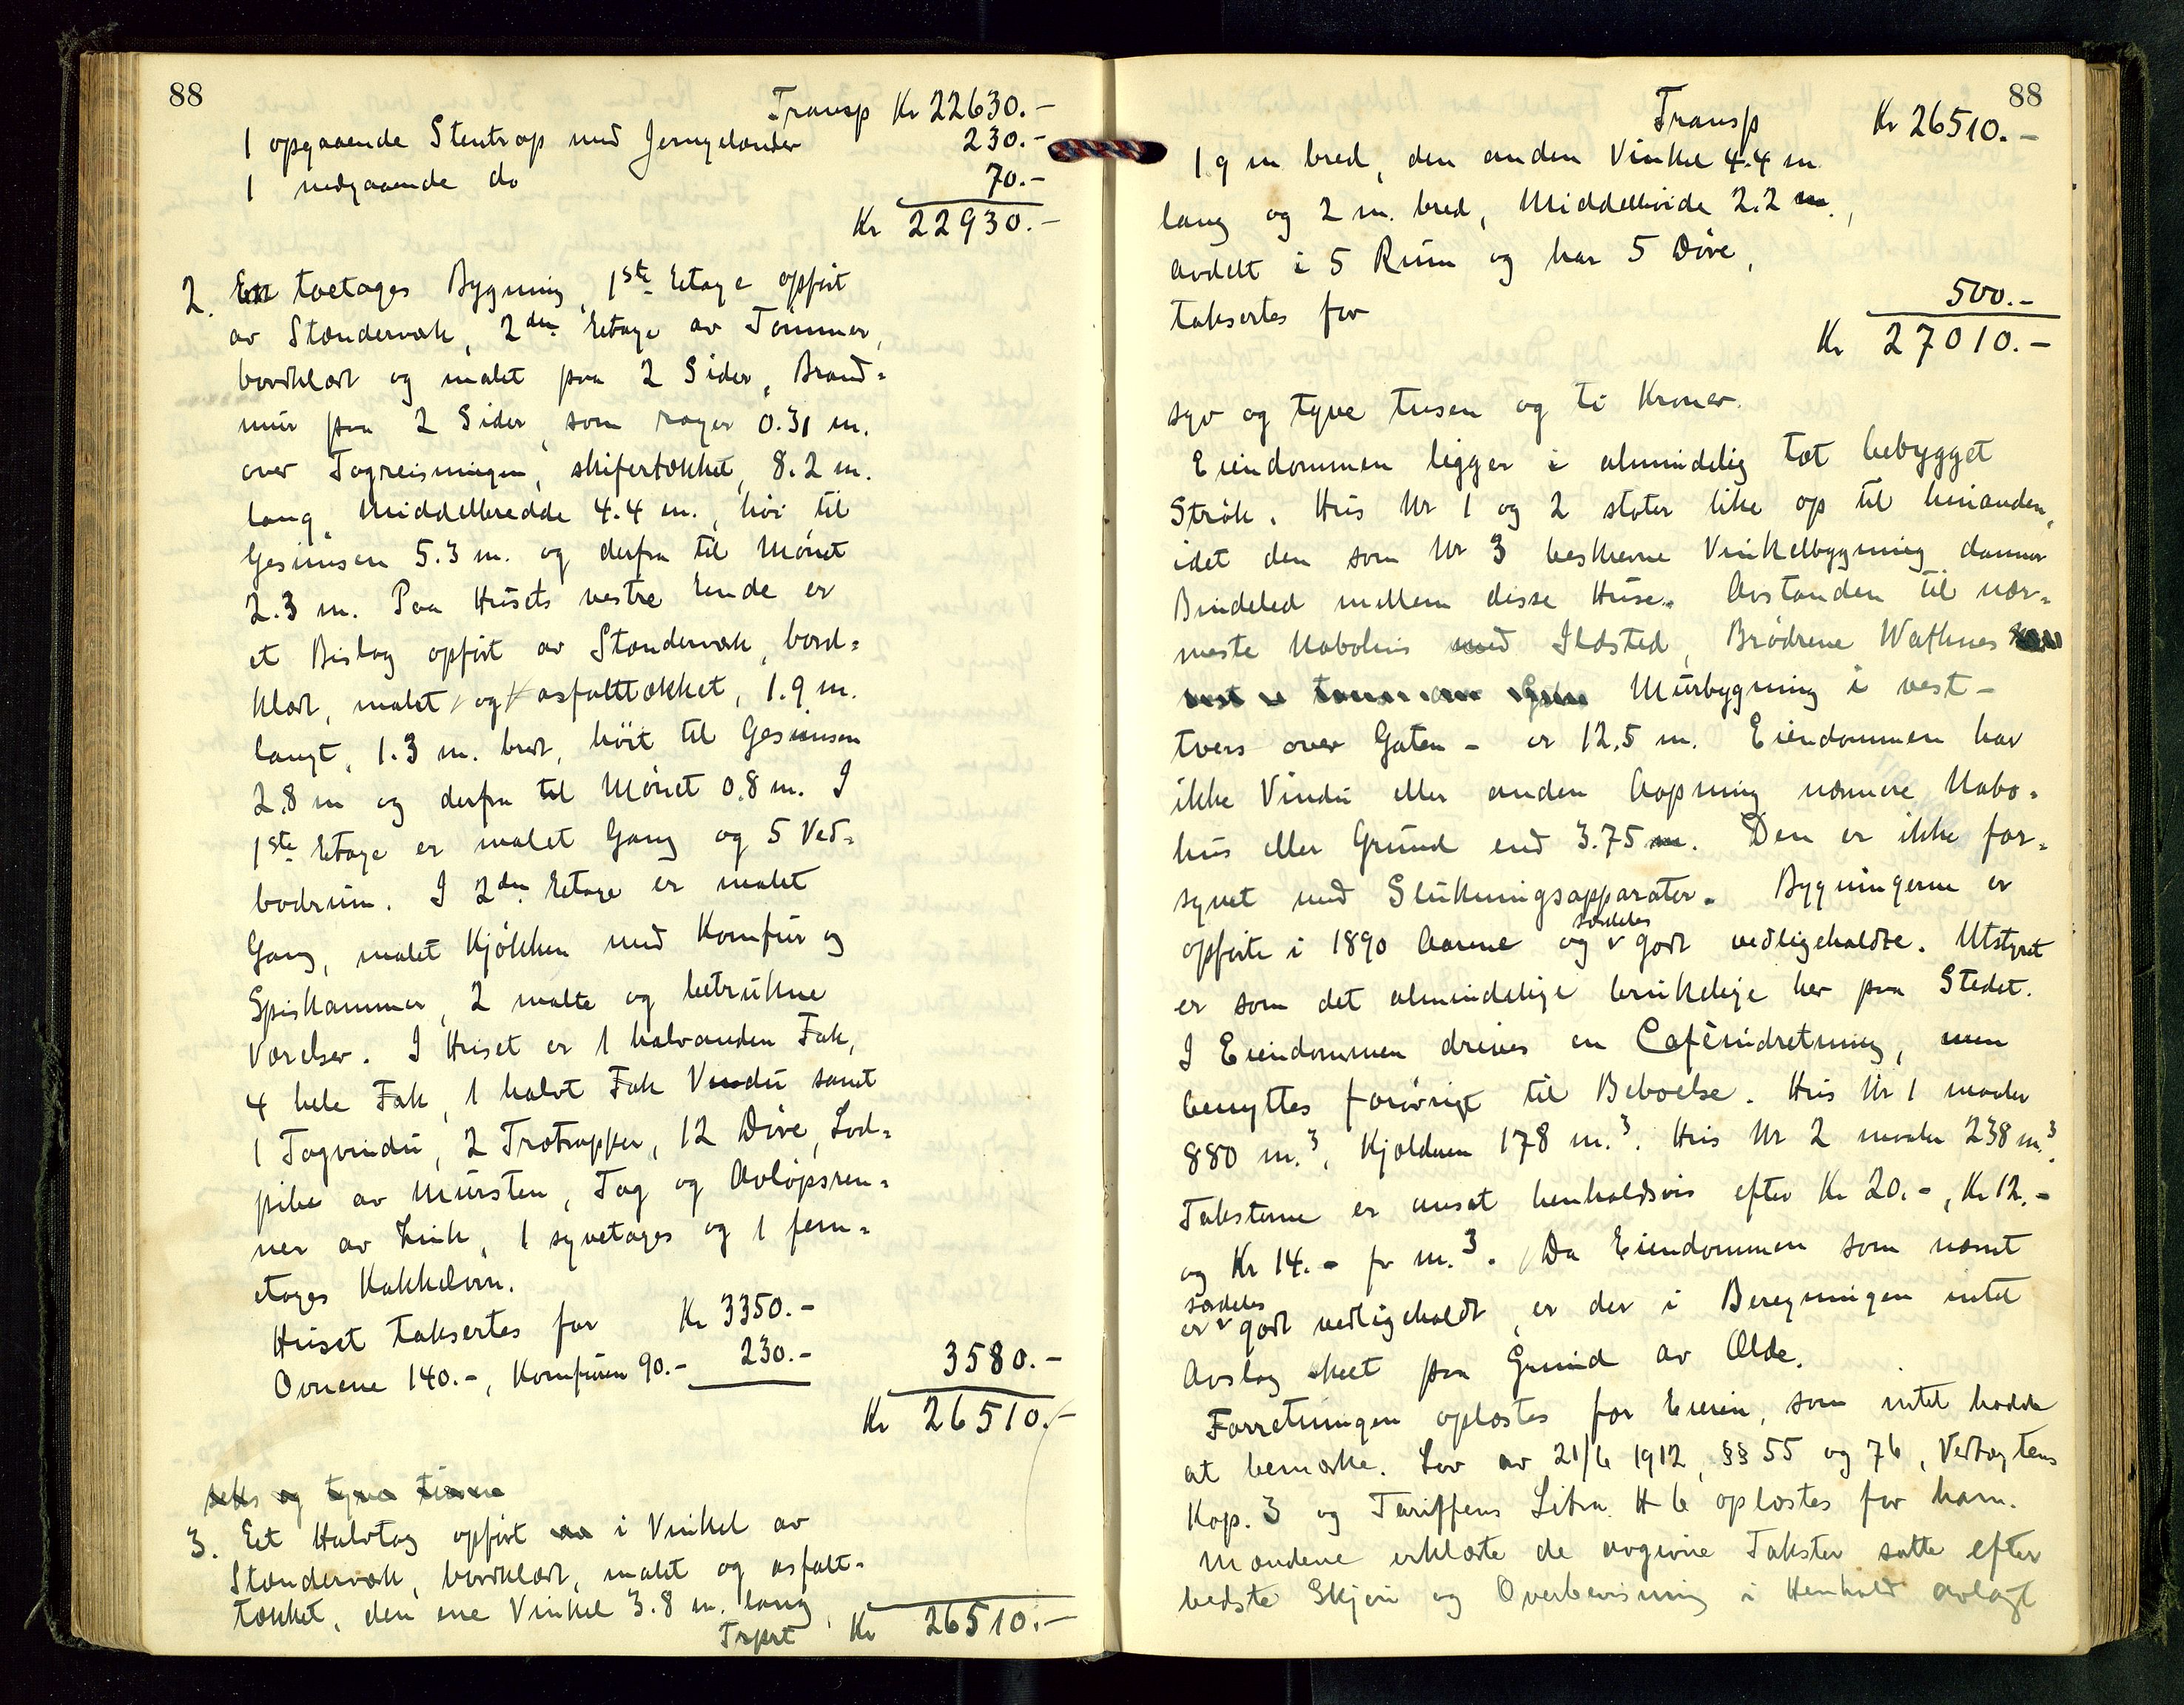 88
Transp Kr 22630.-
1 opgaaende Stentrap med Jerngelænder 230.-
1 nedgaaende do 70.-
Kr 22930.-
2. En toetages Bygning, 1ste Etage opført
av Stændervæk, 2den Etage av Tømmer,
bordklædt og malet paa 2 Sider, Brand=
mur paa 2 Sider, som rager 0.31 m.
over Tagreisningen, skifertækket, 8.2 m.
lang, Middelbredde 4.4 m., høi til
Gesimsen 5.3 m. og derfra til Mønet
2.3 m. Paa Husets vestre Ende er
et Bislag opført av Stændervæk, bord=
klædt, malet og asfalttækket, 1.9 m.
langt, 1.3 m. bredt, høit til Gesimsen
2.8 m og derfra til Mønet 0.8 m. I
1ste Etage er malet Gang og 5 Ved=
bodrum. I 2den Etage er malet
Gang, malet Kjøkken med Komfur og
Spiskammer, 2 malte og betrukne
Værelser. I Huset er 1 halvanden Fak,
4 hele Fak, 1 halvt Fak Vindu samt
1 Tagvindu, 2 Trætrapper, 12 Døre, Lod=
pibe av Mursten, Tag og Avløpsren=
ner av Zink, 1 syvetages og 1 fem=
etages Kakkelovn.
Huset takseres for Kr 3350.-
Ovnene 140.-, Komfuren 90.- 230.- 3580.-
Kr 26510.-
seks og tyve tusene
3. Et Halvtag opført i Vinkel av
Stændervæk, bordklædt, malet og asfalt=
tækket, den ene Vinkel 3.8 m. lang,
Trprt Kr 26510.-
88
Transp Kr 26510.-
1.9 m bred, den anden Vinkel 4.4 m
lang og 2 m. bred, Middelhøide 2.2 m.,
avdelt i 5 Rum og har 5 Døre,
taksertes for 500.-
Kr 27010.-
syv og tyve tusen og ti Kroner.
Eiendommen ligger i almindelig tæt bebygget
Strøk. Hus Nr 1 og 2 støter like op til hinanden,
idet den som Nr 3 beskrevne Vinkelbygning danner
Bindeled mellem disse Huse. Avstanden til nær=
meste Nabohus med Ildsted, Brødrene Wathnes
Murbygning i vest -
tvers over Gaten - er 12.5 m. Eiendommen har
ikke Vindu eller anden Aapning nærmere Nabo=
hus eller Grund end 3.75 m. Den er ikke for=
synet med Slukningsapparater. Bygningerne er
opførte i 1890 Aarene og særdeles godt vedligeholdte. Utstyret
er som det almindelige brukelige her paa Stedet.
I Eiendommen drives en Caféindretning, men
benyttes forøvrigt til Beboelse. Hus Nr 1 maaler
880 m.³, Kjælderen 178 m.³. Hus Nr 2 maaler 238 m.³.
Taksterne er ansat henholdsvis efter Kr 20.-, Kr 12.-
og Kr 14.- pr m.³. Da Eiendommen som nævnt
er særdeles godt vedligeholdt, er der i Beregningen intet
Avslag skeet paa Grund av Ælde.
Forretningen oplæstes for Eieren, som intet hadde
at bemærke. Lov av 21/6 1912, §§ 55 og 76, Vedtægtens
Kap. 3 og Tariffens Litra H 6 oplæstes for ham.
Mændene erklærte de avgivne Takster satte efter
bedste Skjøn og Overbevisning i Henhold avlagt